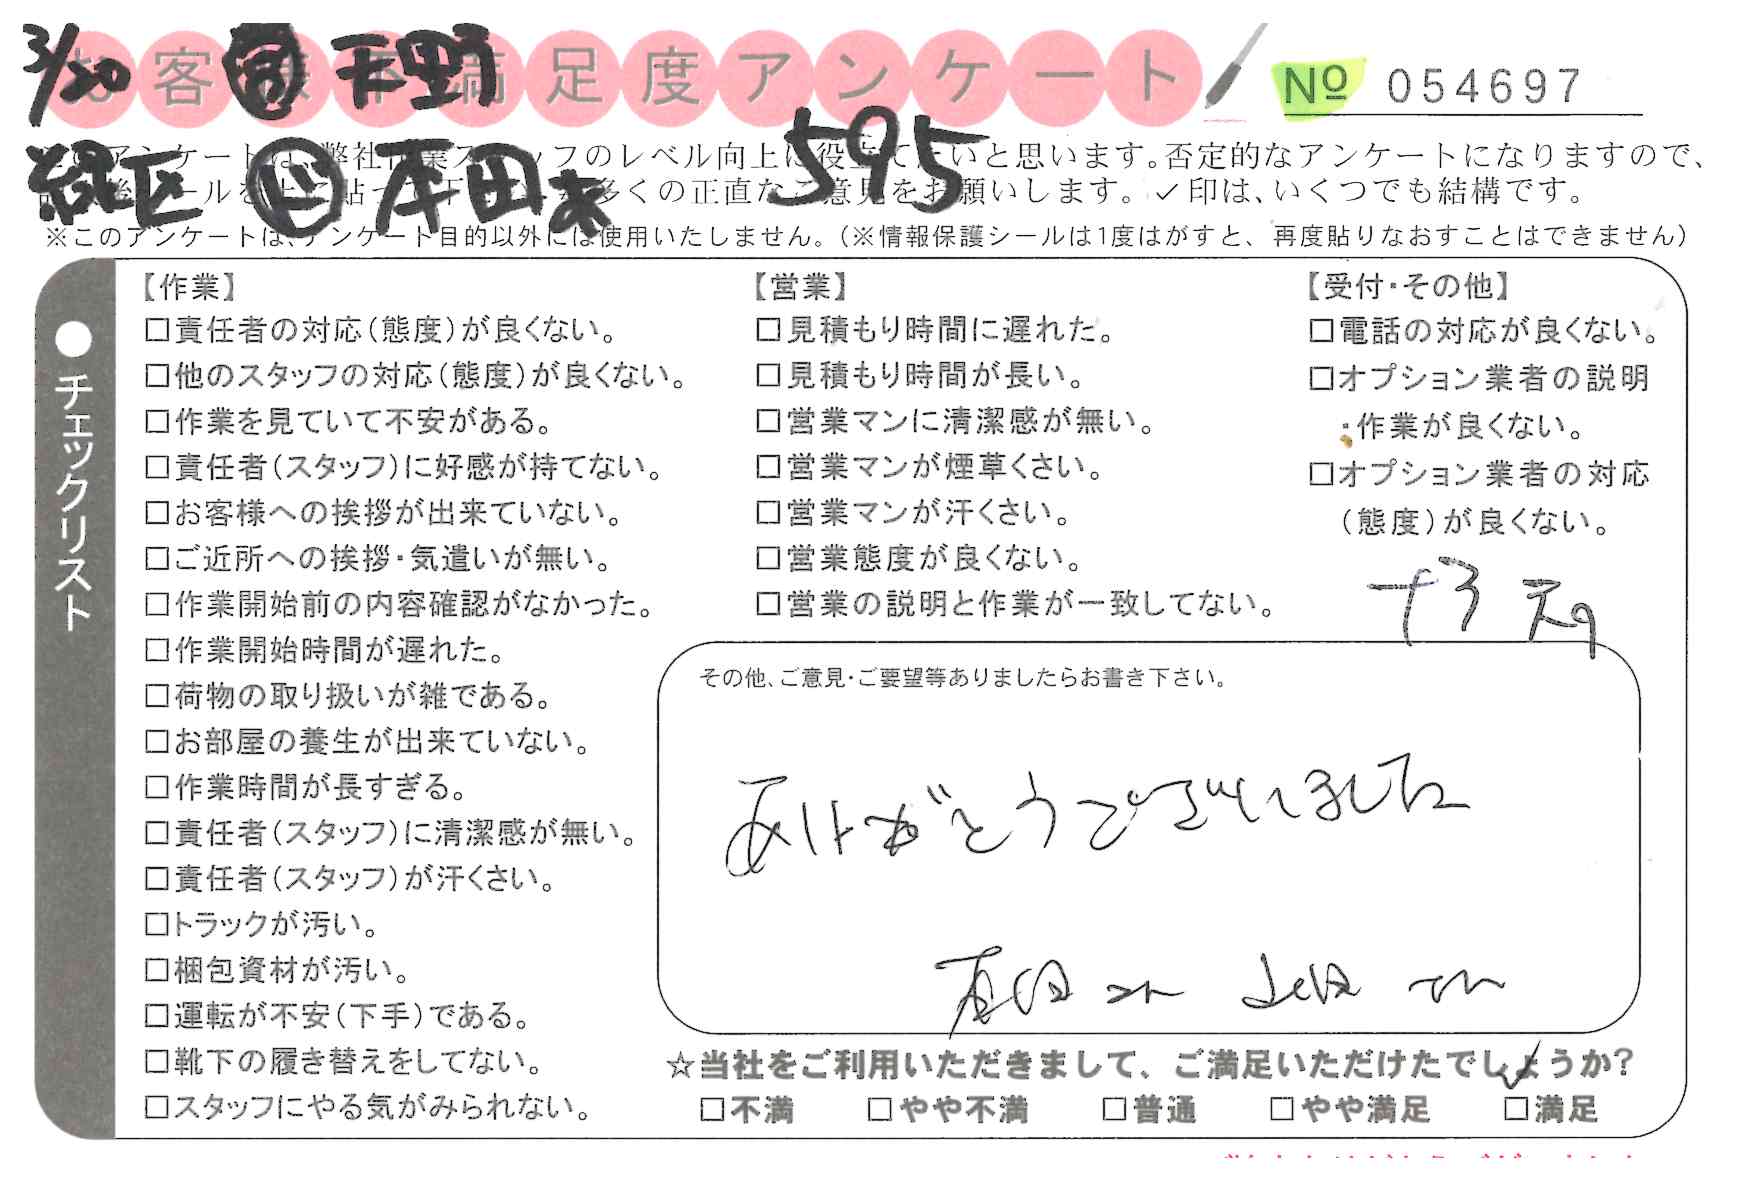 3/20 ㊂ 天野
お客様不満足度アンケート
No 054697
緑区 ド 本田あ 595
このアンケートは、弊社作業スタッフのレベル向上に役立てたいと思います。否定的なアンケートになりますので、
多くの正直なご意見をお願いします。✓印は、いくつでも結構です。
※このアンケートは、アンケート目的以外には使用いたしません。(※情報保護シールは1度はがすと、再度貼りなおすことはできません)
●チェックリスト
【作業】
□責任者の対応(態度)が良くない。
□他のスタッフの対応(態度)が良くない。
□作業を見ていて不安がある。
□責任者(スタッフ)に好感が持てない。
□お客様への挨拶が出来ていない。
□ご近所への挨拶・気遣いが無い。
□作業開始前の内容確認がなかった。
□作業開始時間が遅れた。
□荷物の取り扱いが雑である。
□お部屋の養生が出来ていない。
□作業時間が長すぎる。
□責任者(スタッフ)に清潔感が無い。
□責任者(スタッフ)が汗くさい。
□トラックが汚い。
□梱包資材が汚い。
□運転が不安(下手)である。
□靴下の履き替えをしてない。
□スタッフにやる気がみられない。
【営業】
□見積もり時間に遅れた。
□見積もり時間が長い。
□営業マンに清潔感が無い。
□営業マンが煙草くさい。
□営業マンが汗くさい。
□営業態度が良くない。
□営業の説明と作業が一致してない。
【受付・その他】
□電話の対応が良くない。
□オプション業者の説明
・作業が良くない。
□オプション業者の対応
(態度)が良くない。
その他、ご意見・ご要望等ありましたらお書き下さい。
ありがとうございました
☆当社をご利用いただきまして、ご満足いただけたでしょうか?
□不満 □やや不満 □普通 □やや満足 □満足